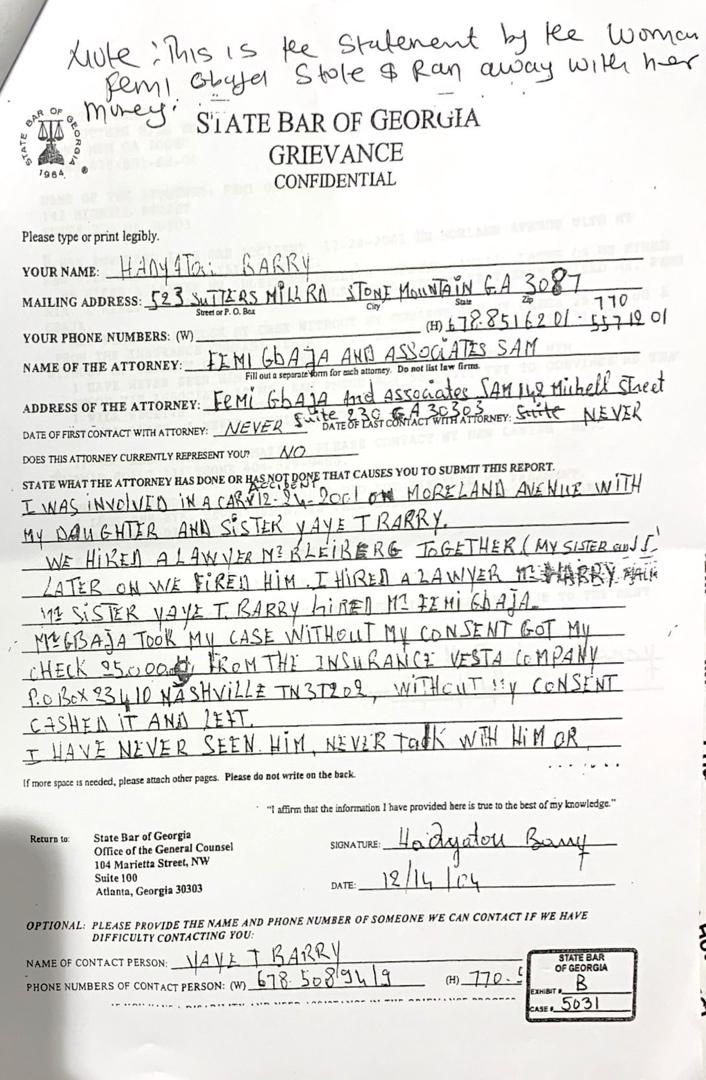 Note: This is the Statement by the Woman
Femi Gbaja Stole & Ran away with her
Money.
STATE BAR OF GEORGIA
1964
STATE BAR OF GEORGIA
GRIEVANCE
CONFIDENTIAL
Please type or print legibly.
YOUR NAME: HADYATOU BARRY
MAILING ADDRESS: 523 SUITERS MILL RD STONE MOUNTAIN GA 3087
Street or P. O. Box City State Zip
770
YOUR PHONE NUMBERS: (W) (H) 678.8516201 - 5571201
NAME OF THE ATTORNEY: FEMI GbAJA AND ASSOCIATES SAM
Fill out a separate form for each attorney. Do not list law firms.
ADDRESS OF THE ATTORNEY: FEMI GbAJA And Associates SAM 142 Michell Street
Suite 230 GA 30303
DATE OF FIRST CONTACT WITH ATTORNEY: NEVER DATE OF LAST CONTACT WITH ATTORNEY: Suite NEVER
DOES THIS ATTORNEY CURRENTLY REPRESENT YOU? NO
STATE WHAT THE ATTORNEY HAS DONE OR HAS NOT DONE THAT CAUSES YOU TO SUBMIT THIS REPORT.
ACCIDENT
I WAS INVOLVED IN A CAR 12-24-2001 ON MORELAND AVENUE WITH
MY DAUGHTER AND SISTER YAYE T BARRY.
WE HIRED A LAWYER Mr BLEIBERG TOGETHER (MY SISTER and I
LATER ON WE FIRED HIM. I HIRED A LAWYER
MY SISTER YAYE T. BARRY HIRED Mr FEMI GbAJA.
Mr GBAJA TOOK MY CASE WITHOUT MY CONSENT GOT MY
CHECK 25,000 FROM THE INSURANCE VESTA COMPANY
P.O BOX 23410 NASHVILLE TN 37202, WITHOUT MY CONSENT
CASHED IT AND LEFT.
I HAVE NEVER SEEN HIM, NEVER TALK WITH HIM OR
If more space is needed, please attach other pages. Please do not write on the back.
"I affirm that the information I have provided here is true to the best of my knowledge."
Return to: State Bar of Georgia
Office of the General Counsel
104 Marietta Street, NW
Suite 100
Atlanta, Georgia 30303
SIGNATURE: Hadyatou Barry
DATE: 12/14/04
OPTIONAL: PLEASE PROVIDE THE NAME AND PHONE NUMBER OF SOMEONE WE CAN CONTACT IF WE HAVE
DIFFICULTY CONTACTING YOU:
NAME OF CONTACT PERSON: YAYE T BARRY
PHONE NUMBERS OF CONTACT PERSON: (W) 678.5089419 (H) 770.5
STATE BAR
OF GEORGIA
EXHIBIT # B
CASE # 5031